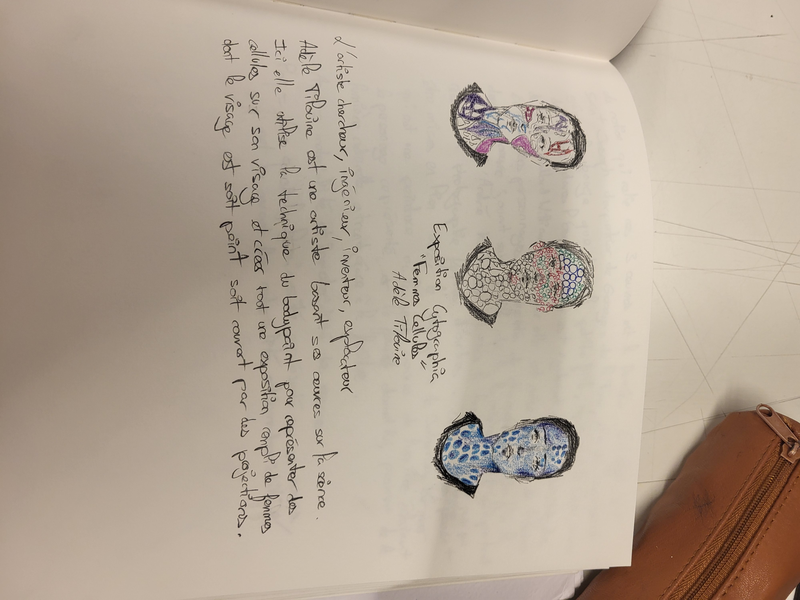 Exposition Cytographia
"Femmes Cellules"
Adèle Tilouine
L'artiste chercheur, ingénieur, inventeur, explorateur
Adèle Tilouine est une artiste basant ses œuvres sur la science.
Ici elle utilise la technique du bodypaint pour représenter des
cellules sur son visage et créer tout une exposition rempli de femmes
dont le visage est soit peint soit couvert par des projections.